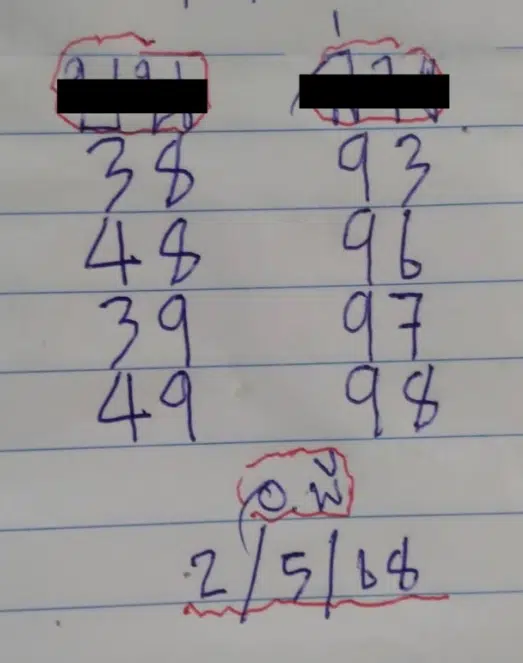 38 93
48 96
39 97
49 98
2/5/68